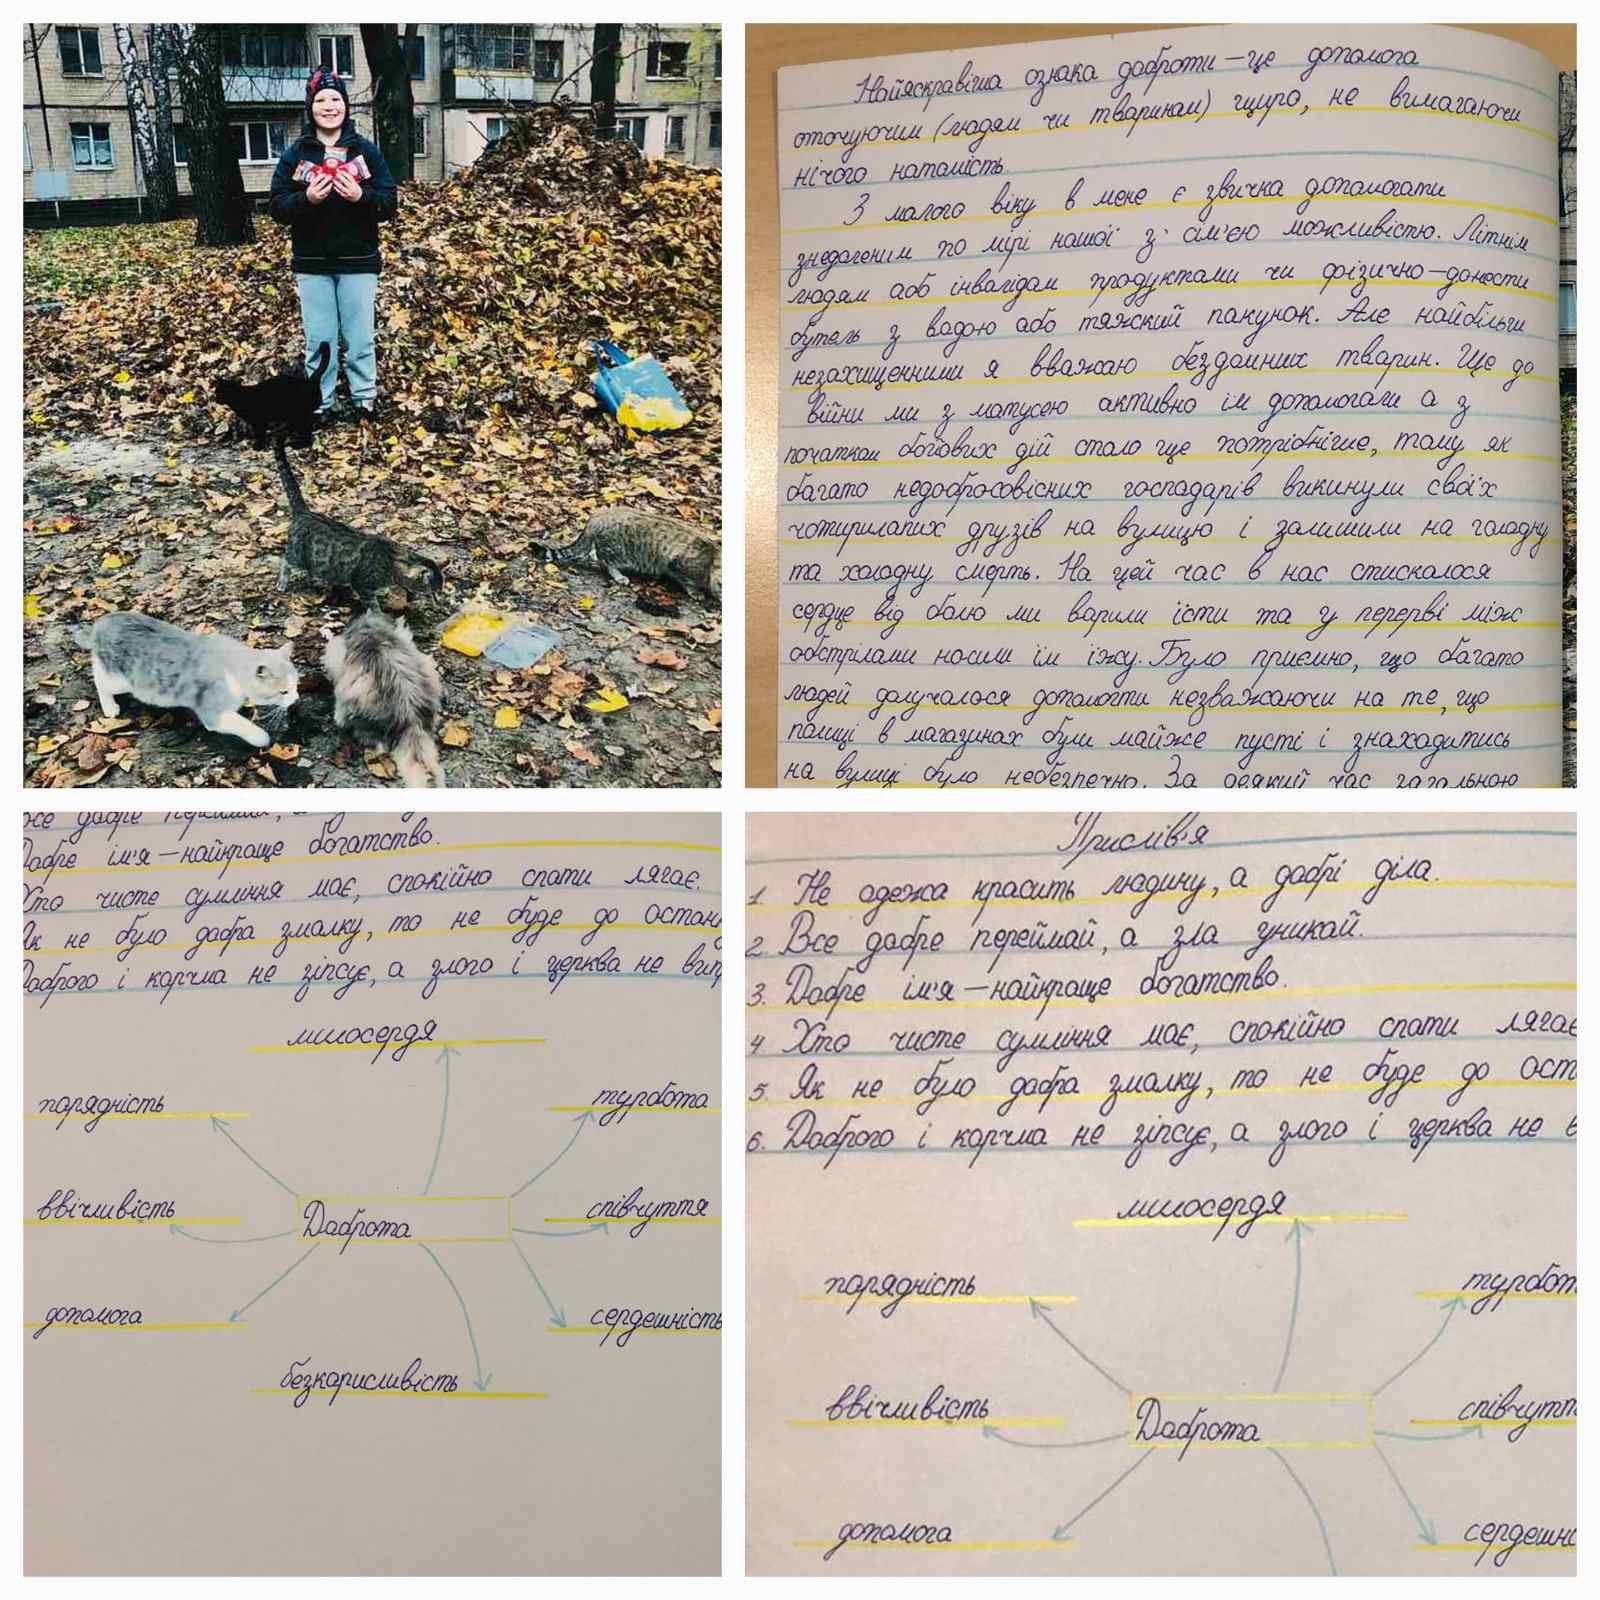 Найяскравіша ознака доброти — це допомога
оточуючим (людям чи тваринам) щиро, не вимагаючи
нічого натомість.
З малого віку в мене є звичка допомагати
знедоленим по мірі нашої з сім'єю можливістю. Літнім
людям або інвалідам продуктами чи фізично — донести
бутель з водою або тяжкий пакунок. Але найбільш
незахищенними я вважаю бездомних тварин. Ще до
війни ми з матусею активно їм допомогали а з
початком бойових дій стало ще потрібніше, тому як
багато недобросовісних господарів викинули своїх
чотирилапих друзів на вулицю і залишили на голодну
та холодну смерть. На цей час в нас стискалося
серце від болю ми варили їсти та у перерві між
обстрілами носили їм їжу. Було приємно, що багато
людей долучалося допомогти незважаючи на те, що
полиці в магазинах були майже пусті і знаходитись
на вулиці було небезпечно. За деякий час загальною
Добре ім'я — найкраще богатство.
Хто чисте сумління має, спокійно спати лягає.
Як не було добра змалку, то не буде до остан
Доброго і корчма не зіпсує, а злого і церква не вип
милосердя
порядність
турбота
ввічливість
Доброта
співчуття
допомога
сердешність
безкорисливість
Прислів'я
1. Не одежа красить людину, а добрі діла.
2. Все добре переймай, а зла уникай.
3. Добре ім'я — найкраще богатство.
4 Хто чисте сумління має, спокійно спати лягає
5. Як не було добра змалку, то не буде до ост
6. Доброго і корчма не зіпсує, а злого і церква не в
милосердя
порядність
турбот
ввічливість
Доброта
співчутт
допомога
сердешніс